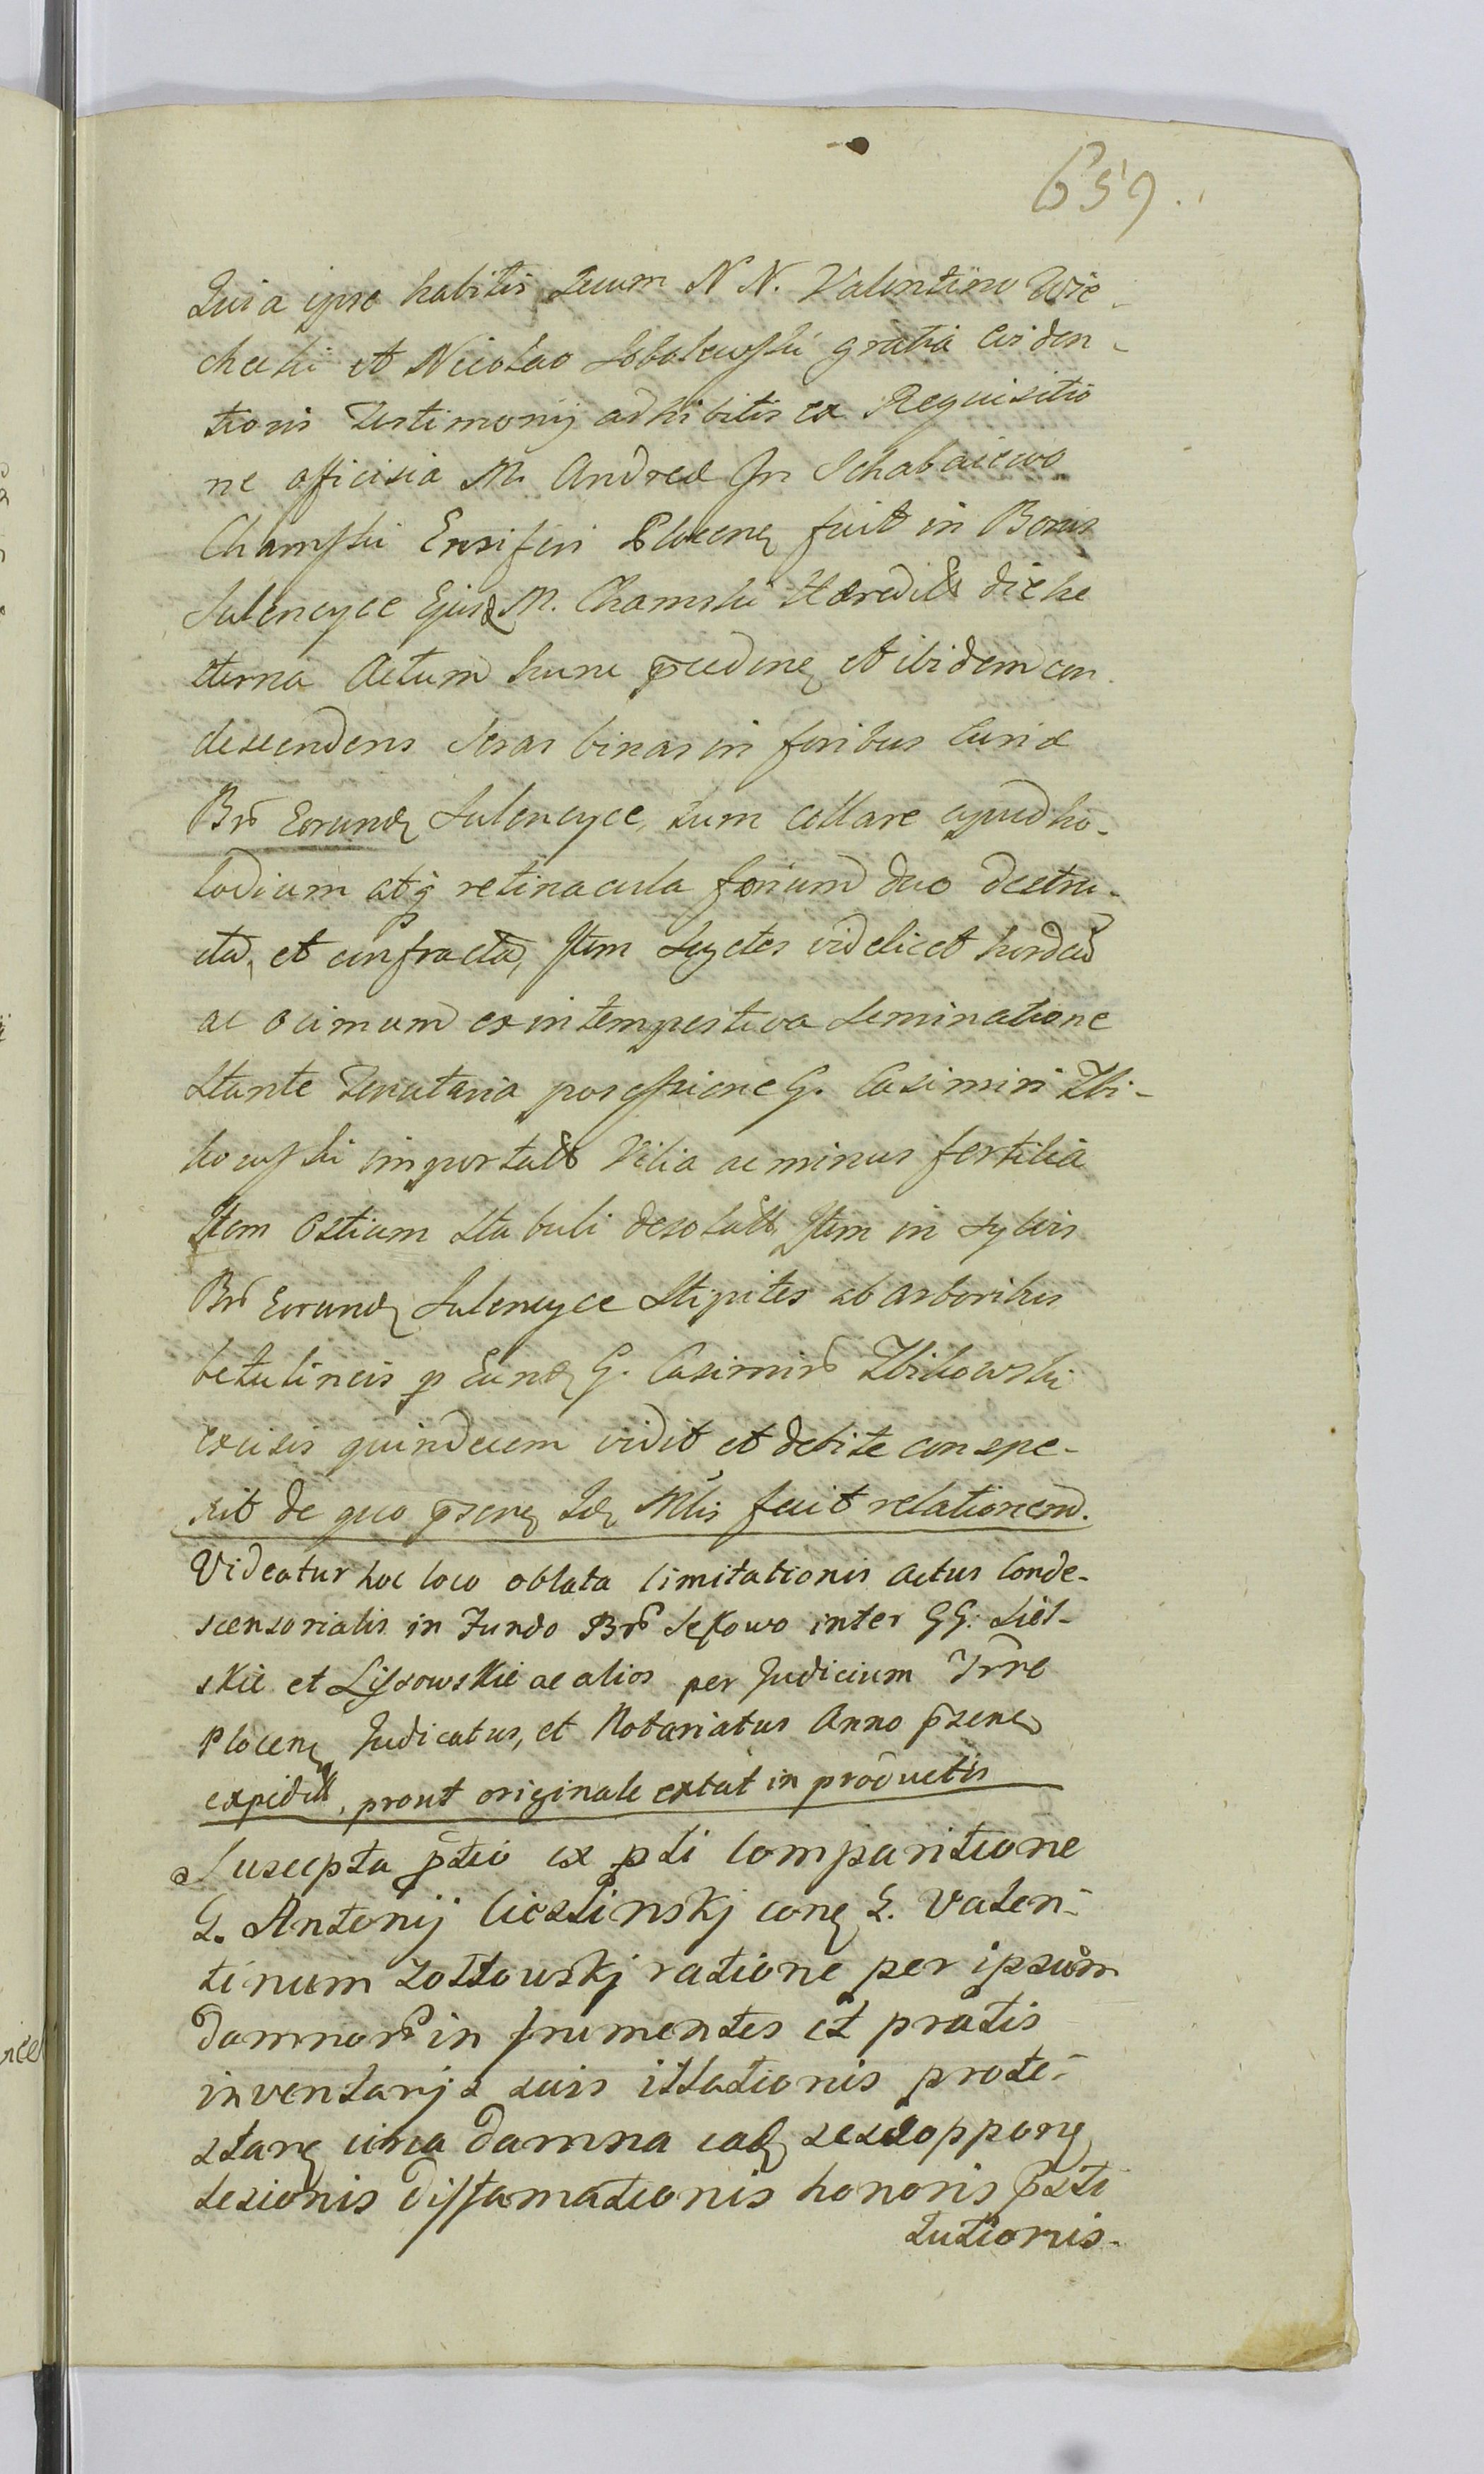 659.
Quia ipse habitis secum N N. Valentino Wie-
checki et Nicolao Sobolewski gratia eviden-
tioris Testimonij adhibitis ex Requisitio
ne officiosa M. Andreæ In Schabaiewo
Chamski Ensiferi Plocen fuit in Bonis
Sulencyce Ejusd M. Chamski Hæreditt die he
sterna Actum hunc præceden et ibidem con-
descendens Seras binas in foribus Curiæ
Bro Eorund Sulencyce, tum collare apud ho-
lodium atq retinacula forium duo destru-
cta, et confracta, Item Segetes videlicet hordeu
ac ocimum ex intempestiva Seminatione
Stante Tenutaria possessione G. Casimiri Zbi-
kowski importatt Vilia ac minus fertilia
Item Ostium Stabuli desolatt Item in Sylvis
Bro Eorund Sulencyce Stipites ab arboribus
betulineis p Eund G. Casimiro Zbikowski
excisis quindecem vidit et debite conspe-
xit de quo prsens Id Mlis fecit relationem.
Videatur hoc loco oblata limitationis Actus Conde-
scensorialis in Fundo Bro Sękowo inter GG: Siel-
skie et Lissowskie ac alios per Judicium Trre
Plocen Judicatus, et Notariatus Anno prsenti
expeditt, prout originale extat in productis
Suscepta ptio ex psti comparitione
G. Antonij Cieslinskj con G. Valen-
tinum Zoltowskj ratione per ipsum
damnoro in frumentes et pratis
inventarijs suis illationis prote-
stan circa damna ead sese oppon
lesionis diffamationis honoris psti
tutionis-